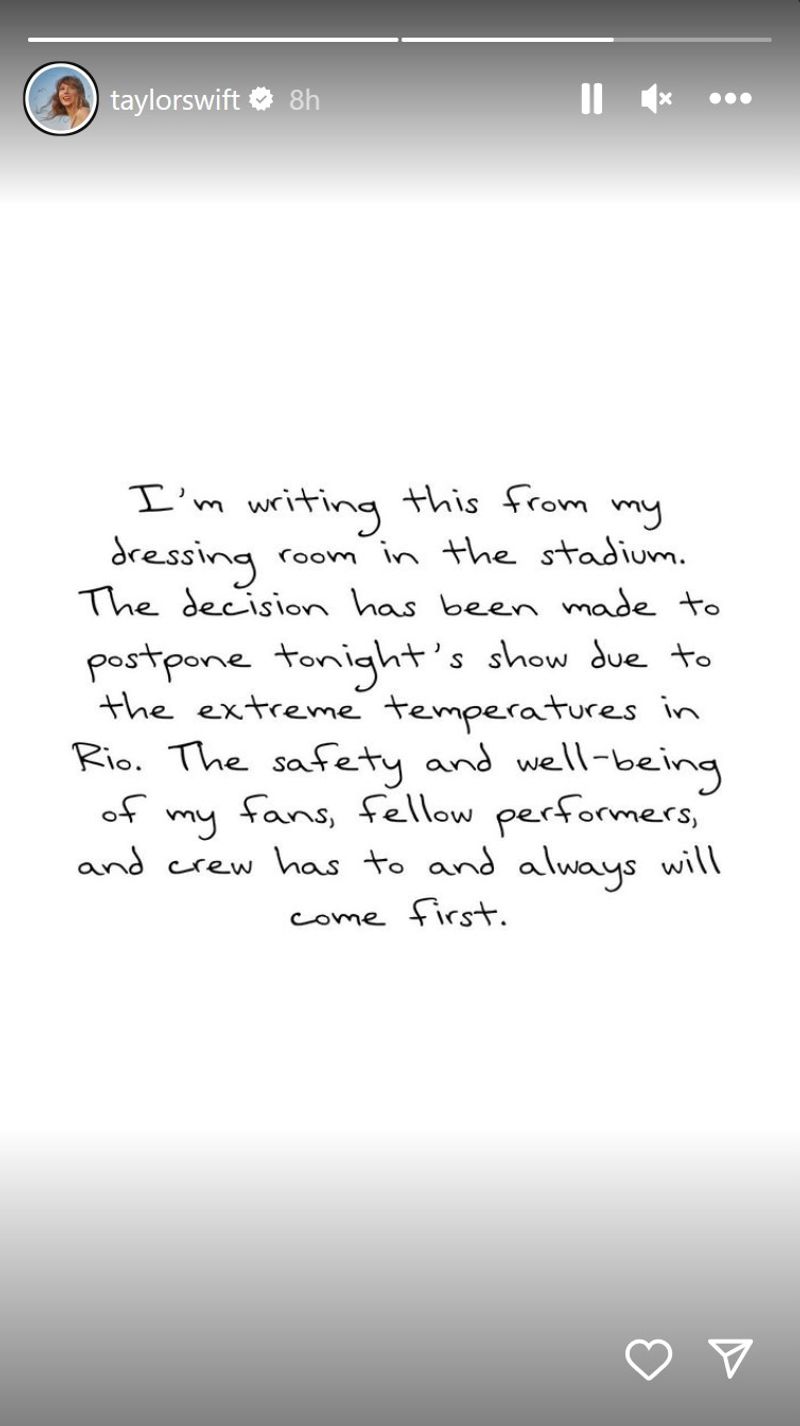 taylorswift 8h
I'm writing this from my
dressing room in the stadium.
The decision has been made to
postpone tonight's show due to
the extreme temperatures in
Rio. The safety and well-being
of my fans, fellow performers,
and crew has to and always will
come first.